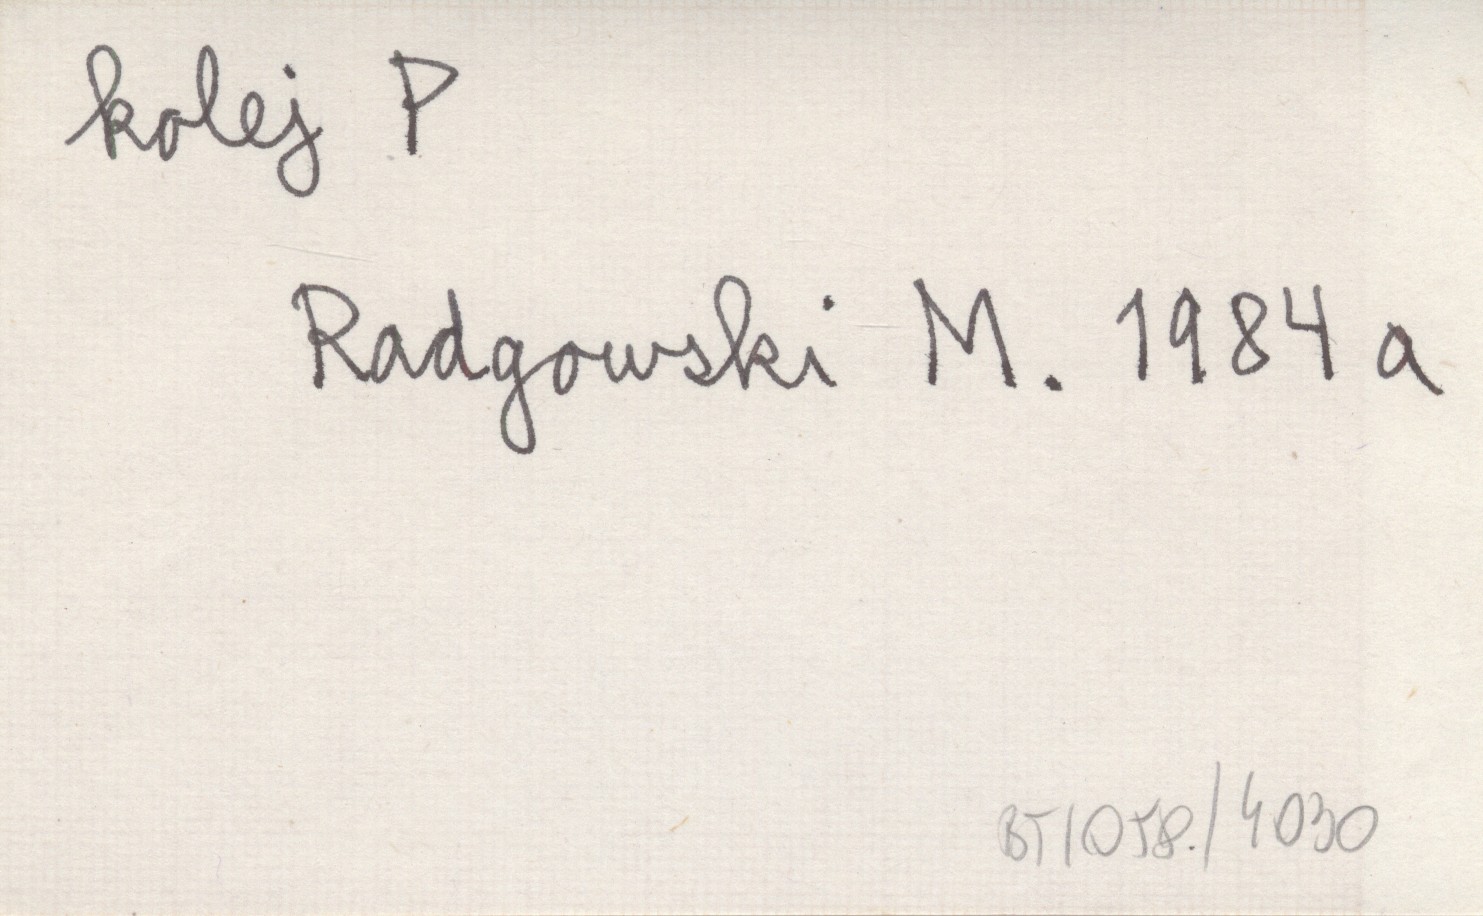 kolej P
Radgowski M. 1984 a
BT1058./4030